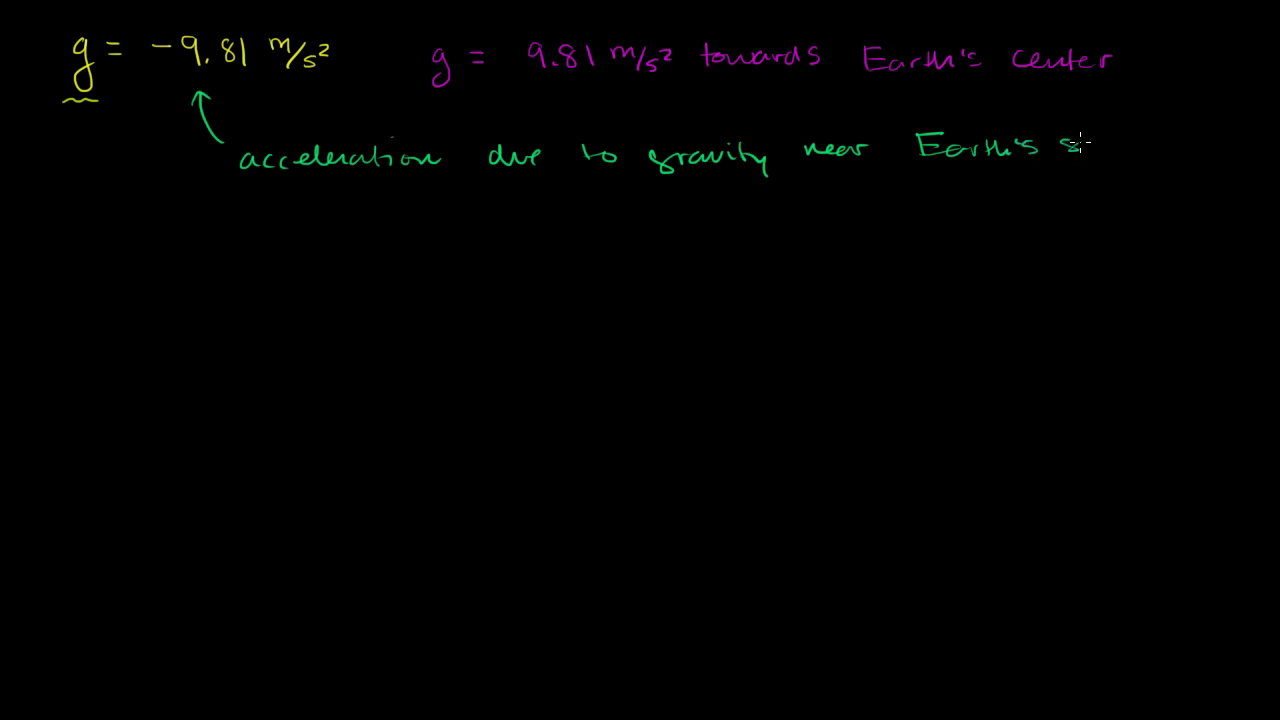 g = -9.81 m/s² g = 9.81 m/s² towards Earth's center
acceleration due to gravity near Earth's s